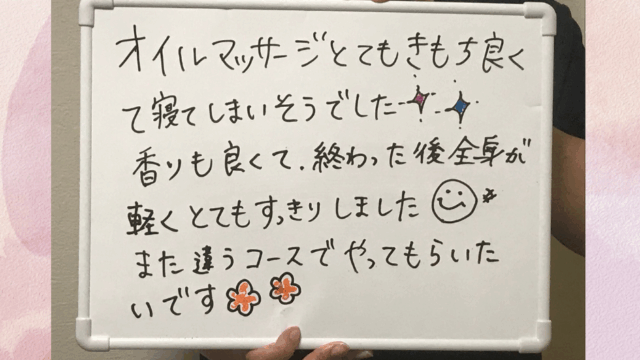 オイルマッサージとてもきもち良く
て寝てしまいそうでした
香りも良くて、終わった後全身が
軽くとてもすっきりしました
また違うコースでやってもらいた
いです